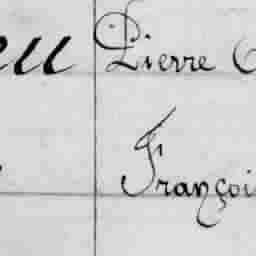 eu Pierre
Françoi